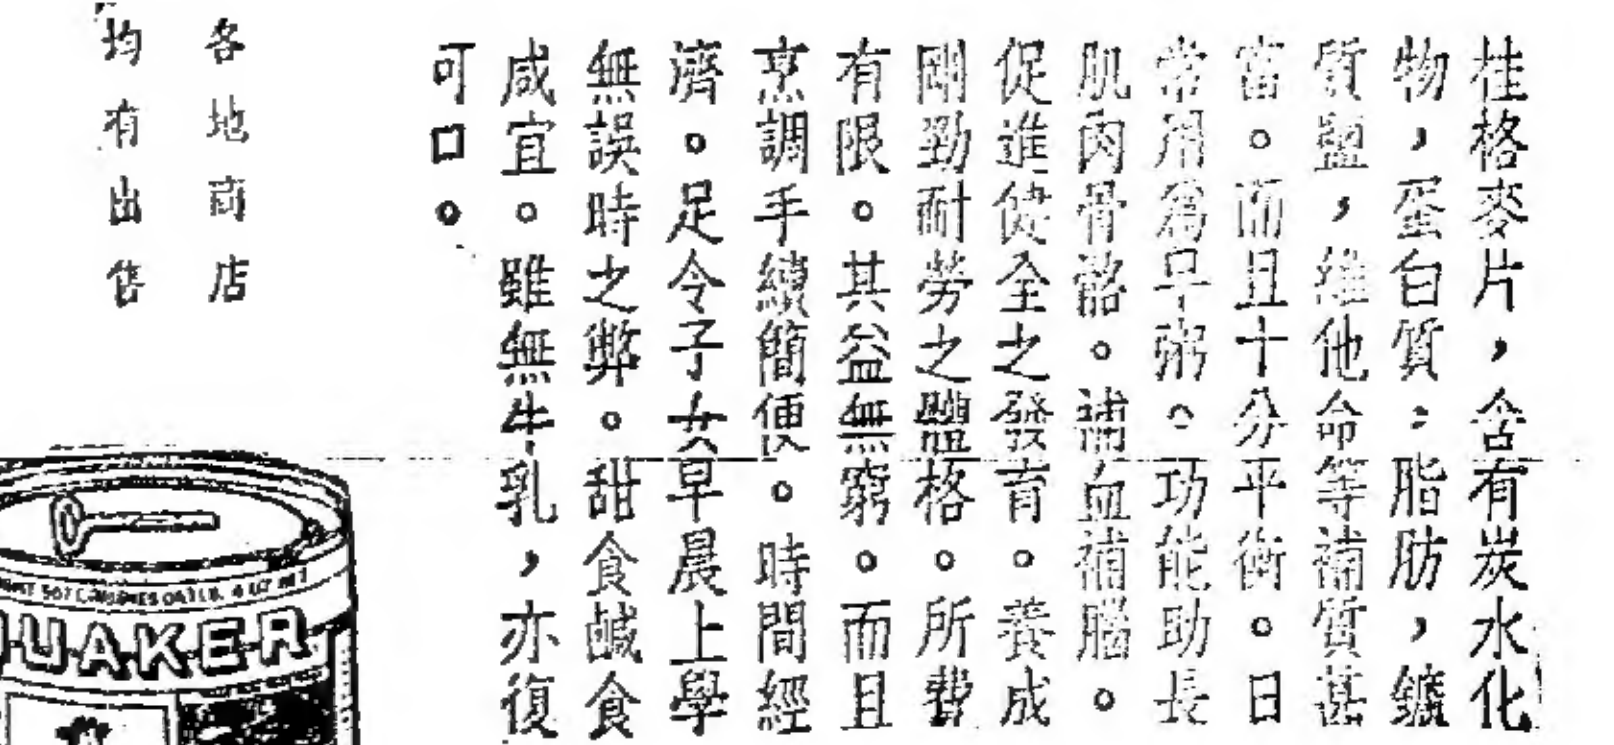 桂格麥片，含有炭水化
物，蛋白質；脂肪，鑛
質鹽，維他命等補質甚
富。而且十分平衡。日
常用爲早粥。功能助長
肌肉骨骼。補血補腦。
促進健全之發育。養成
剛勁耐勞之體格。所費
有限。其益無窮。而且
烹調手續簡便。時間經
濟。足令子女早晨上學
無誤時之弊。甜食鹹食
咸宜。雖無牛乳，亦復
可口。
各地商店
均有出售
QUAKER